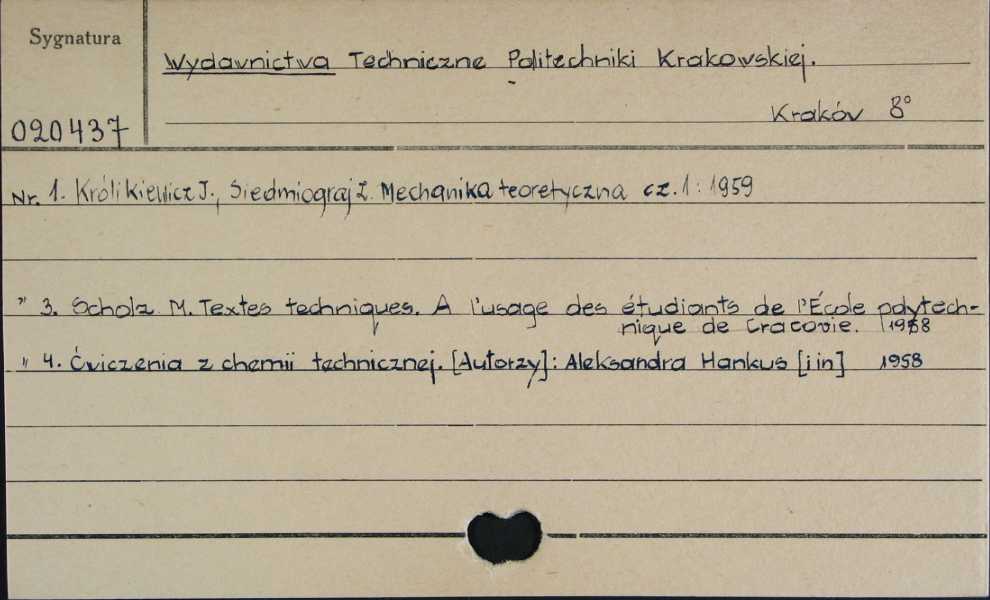 Sygnatura
Wydawnictwa Techniczne Politechniki Krakowskiej.
Kraków 8°
020437
Nr. 1. Królikiewicz J., Siedmiograj Z. Mechanika teoretyczna cz. 1 : 1959
" 3. Scholz M. Textes techniques. A l'usage des étudiants de l'École polytech-
nique de Cracovie. 1958
" 4. Ćwiczenia z chemii technicznej. [Autorzy]: Aleksandra Hankus [i in] 1958